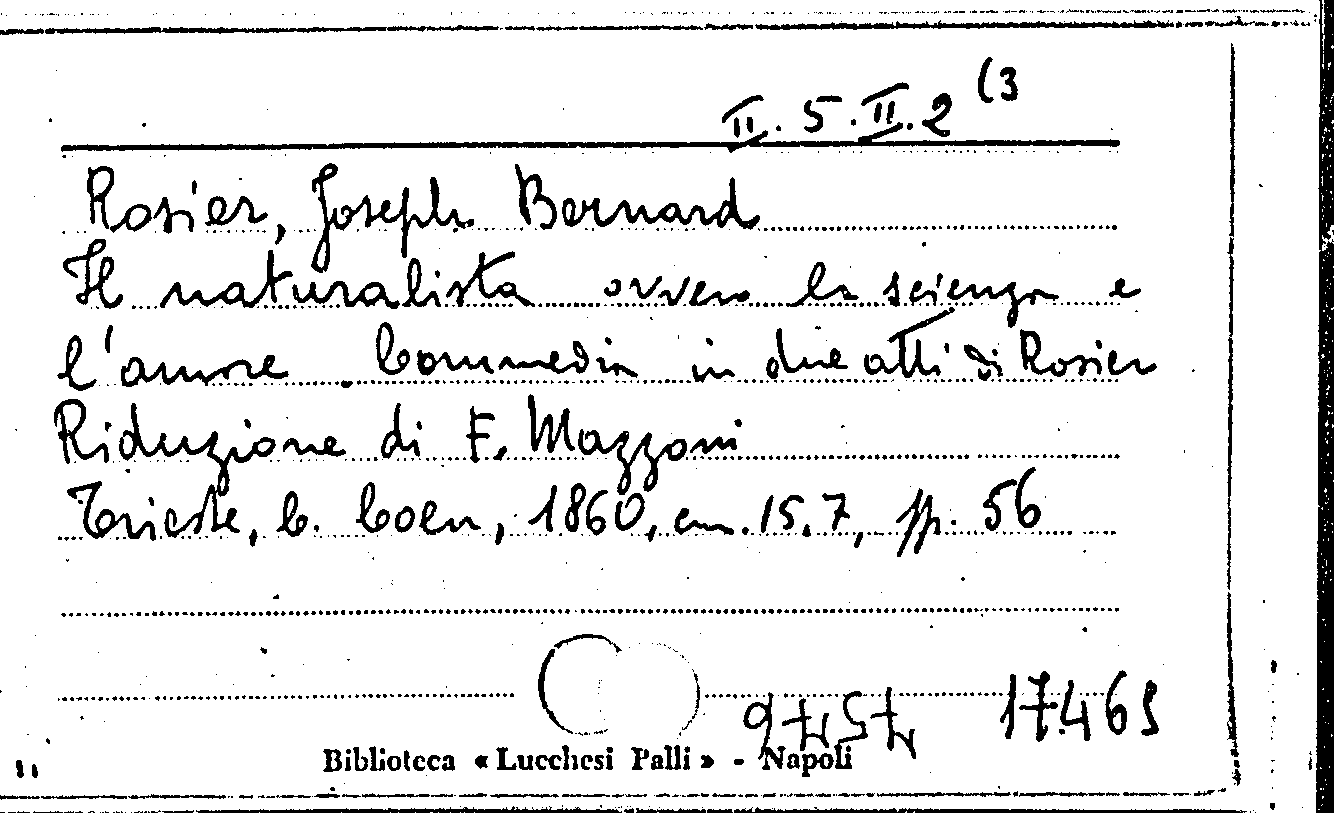 II. 5. II. 2 (3
Rosier, Joseph Bernard
Il naturalista ovvero la scienza e
l'amore. Commedia in due atti di Rosier
Riduzione di F. Mazzoni
Trieste, C. Coen, 1860, cm. 15.7, pp. 56
17.469
Biblioteca « Lucchesi Palli » - Napoli